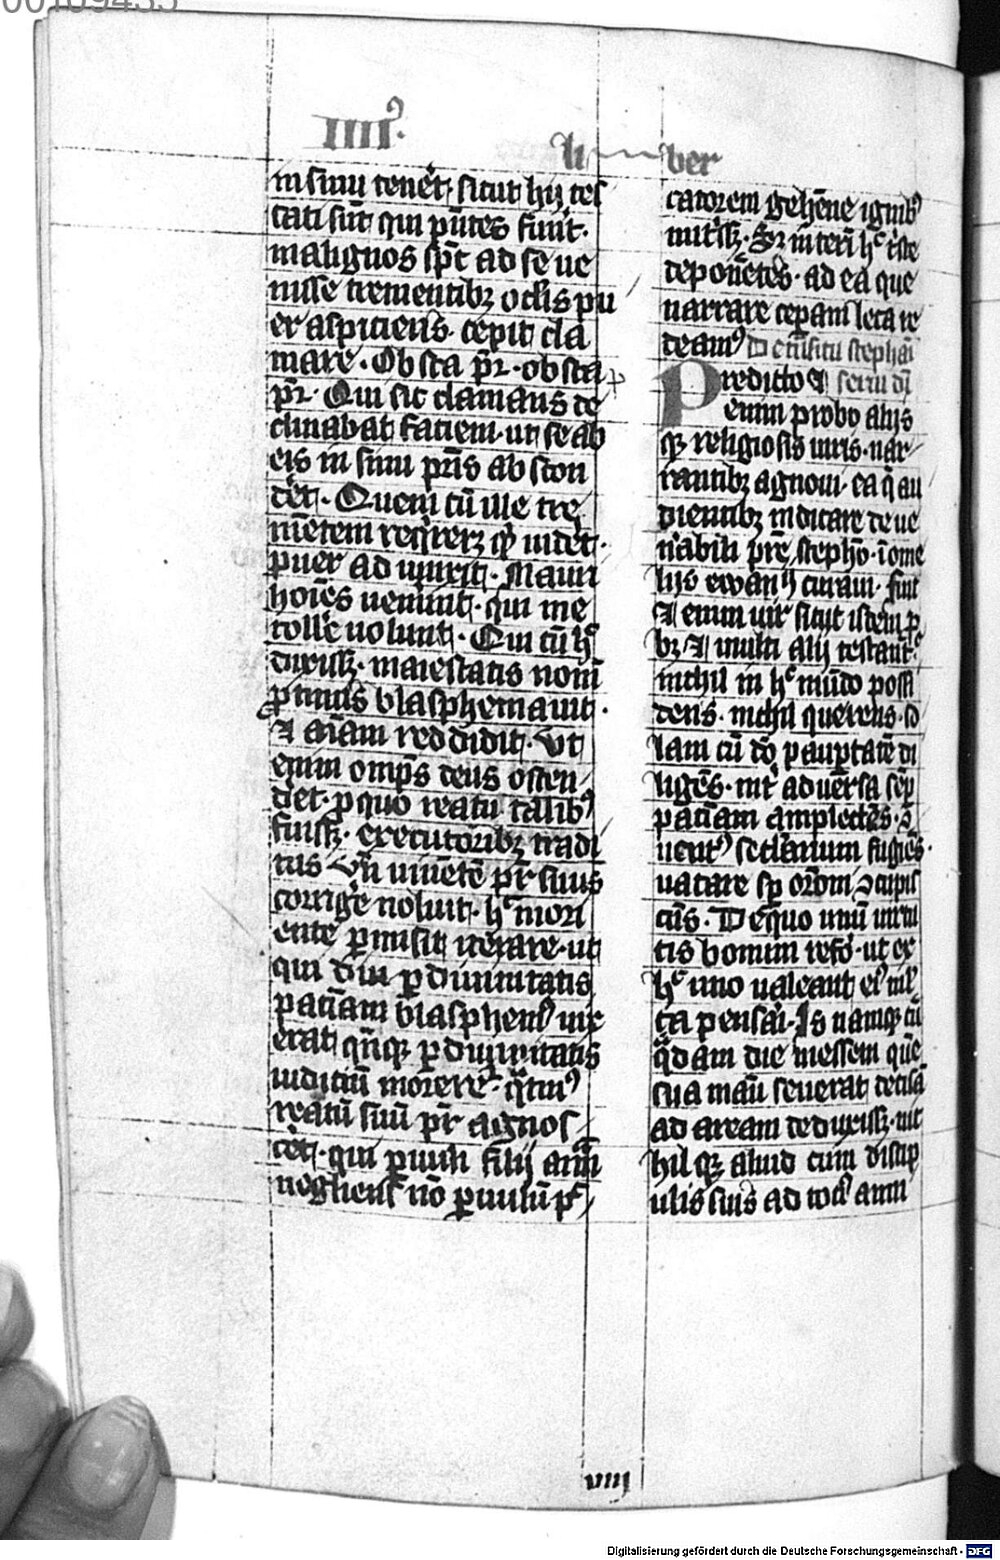 00109435
IIIIꝰ.
li ber
in sinu tenet̄. sicut hij tes
tati sūt qui p̄ntes fuūt.
malignos sp̄c ad se ue
nisse trementibꝫ oclis pu
er aspitiens. cepit cla
mare. Obsta pr̄. obsta
pr̄. Qui sic clamans de
clinabat faciem. ut se ab
eis in sinu pr̄is abscon
det̄. Quem cū ille tre
mētem reqͥrerꝫ qͥd uidet̄.
puer adiunxit. Mauri
hoīes uenerūt. qui me
tolle uolunt. Qui cū hͨ
dixissꝫ. maiestatis nom̄
ꝓtinus blasphemauit.
⁊ aīam reddidit. Vt
enim omps̄ deus osten
det. ꝓ quo reatu talibꝰ
fuissꝫ. executoribꝫ tradi
tus Vn̄ uiuētē pr̄ suus
corrige noluit. hͨ mori
ente ꝑmisit iterare. ut
qui diu ꝑ diuinitatis
patiā̄m blasphemꝰ uix
erat qn̄qꝫ ꝑ diuinitatis
iuditiū morere. qͣtinꝰ
reatū suū pr̄ agnos
cet̄. qui paruuli filij aīm
negliens nō paruulū pͨ
catorem gehēne ignibꝰ
nutͥssꝫ. Sꝫ int̄im hͨ tͥste
deponētes. ad ea que
narrare ceperam̄ leta re
deamꝰ De tn̄situ stephai
Predicto ⁊ seruī dī
enim probo alijs
qꝫ religiosis uiris. nar
rantibꝫ agnoui. ea q̄ au
dientibꝫ indicare de ue
n̄abili pr̄e stepho. ī ome
lijs ewan̄ij curaui. fuit
⁊ enim uir sicut isdem p
bꝫ ⁊ multi alij testantᷣ
nichil in hͨ mūdo possi
dens. nichil querens. so
lam cū dō paupertatē di
ligēs. int̄ aduersa semꝑ
patiā̄m amplectēs. ꝯ
uentꝰ seclarium fugiēs.
uacare semꝑ orōni ꝯcupis
cēs. De quo unū uirtu
tis bonum refo. ut ex
hͨ uno ualeant eiꝰ ml̄
ta pensari. Is namqꝫ cū
qͣdam die messem quē
sua manu seuerat decisā
ad aream deduxissꝫ. nic
hilqꝫ aliud cum discip
ulis suis ad totiꝰ anni
viiij
Digitalisierung gefördert durch die Deutsche Forschungsgemeinschaft - DFG